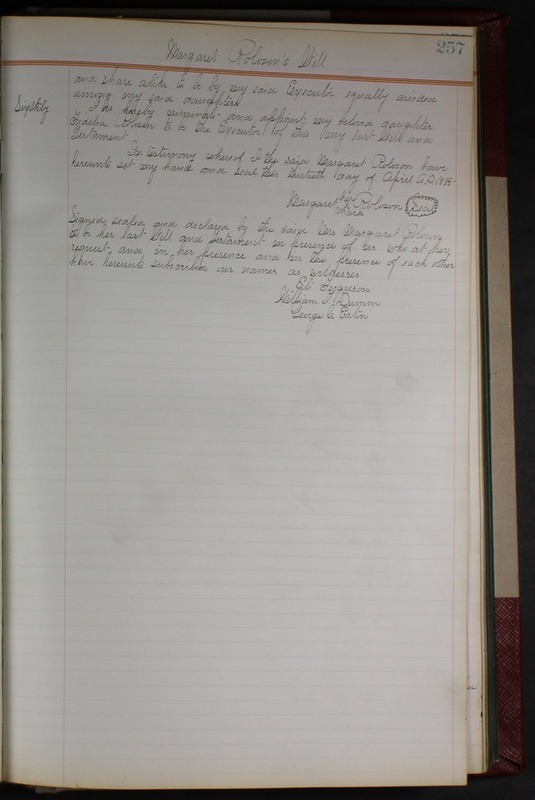 257
Margaret Robson's Will
and share alike to be by my said Executor equally divided
among my said daughters
Sixthly I do hereby nominate and appoint my beloved daughter
Robson to be the Executor of this my last Will and
Testament.
In testimony whereof I the said Margaret Robson have
hereunto set my hand and seal this thirtieth day of April A.D. 18
Margaret her X mark Robson Seal
Signed, sealed and declared by the said Mrs Margaret Robson
to be her last Will and Testament in presence of us who at her
request, and in her presence and in the presence of each other
have hereunto subscribed our names as witnesses
Eli Ferguson
William J. Dumm
George W. Eaton